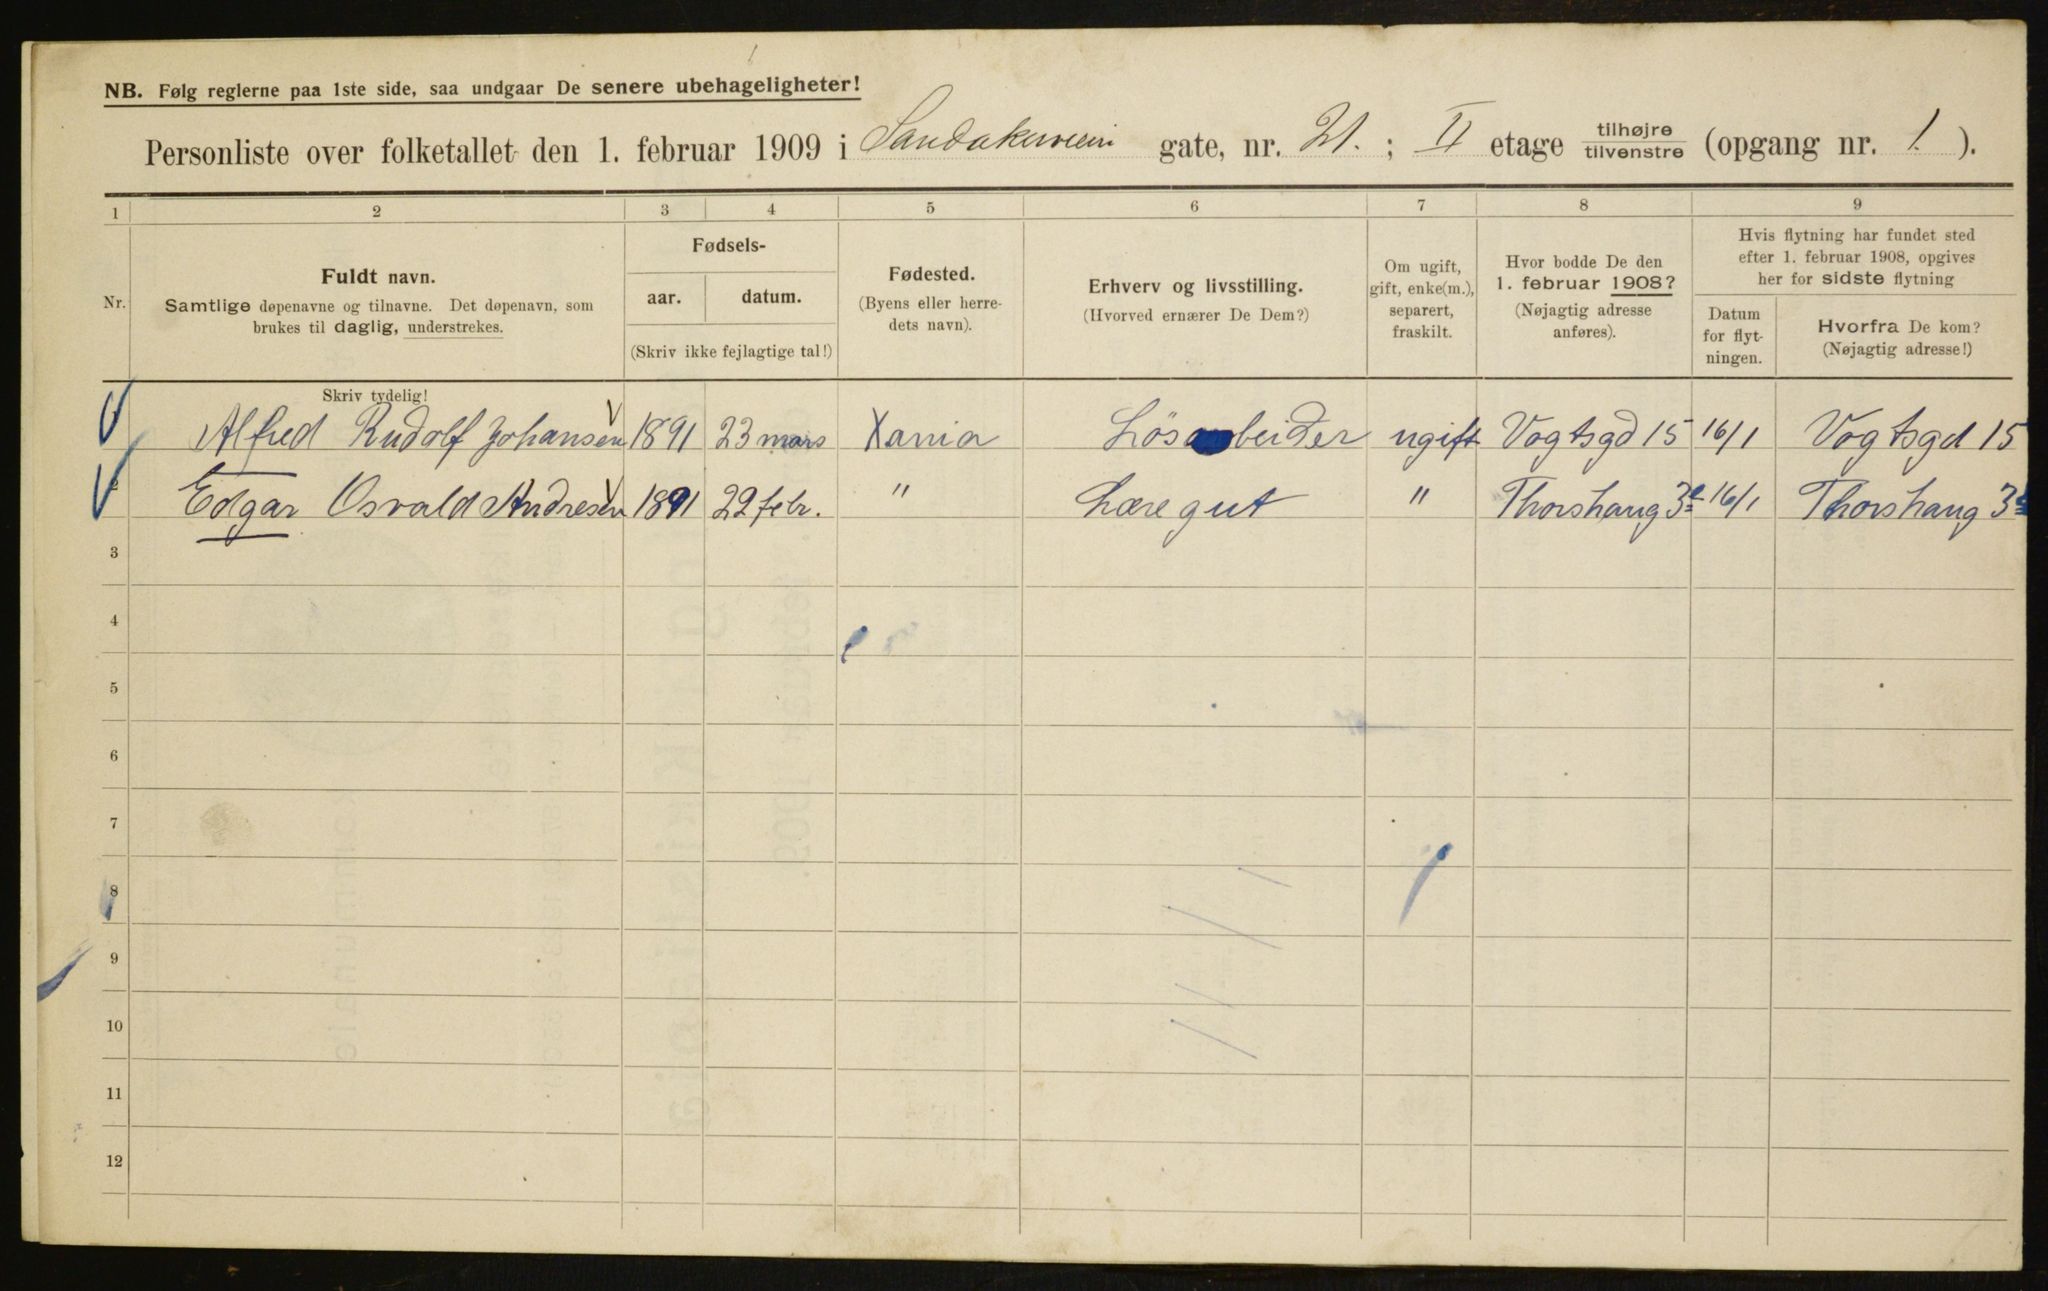 NB. Følg reglerne paa 1ste side, saa undgaar De senere ubehageligheter!
Personliste over folketallet den 1. februar 1909 i Sandakerveien gate, nr. 21. ; II etage tilhøjre/tilvenstre (opgang nr. 1. ).
1 2 3 4 5 6 7 8 9
Nr.
Fuldt navn.
Samtlige døpenavne og tilnavne. Det døpenavn, som
brukes til daglig, understrekes.
Fødsels-
aar. datum.
(Skriv ikke fejlagtige tal!)
Fødested.
(Byens eller herre-
dets navn).
Erhverv og livsstilling.
(Hvorved ernærer De Dem?)
Om ugift,
gift, enke(m.),
separert,
fraskilt.
Hvor bodde De den
1. februar 1908?
(Nøjagtig adresse
anføres).
Hvis flytning har fundet sted
efter 1. februar 1908, opgives
her for sidste flytning
Datum
for flyt-
ningen.
Hvorfra De kom?
(Nøjagtig adresse!)
Skriv tydelig!
Alfred Rudolf Johansen 1891 23 mars Xania Lösarbeider ugift Vogtsgd 15 16/1 Vogtsgd 15
2 Edgar Osvald Andresen 1891 22 febr. " Læregut " Thorshaug 3e 16/1 Thorshaug 3e
3
4
5
6
7
8
9
10
11
12